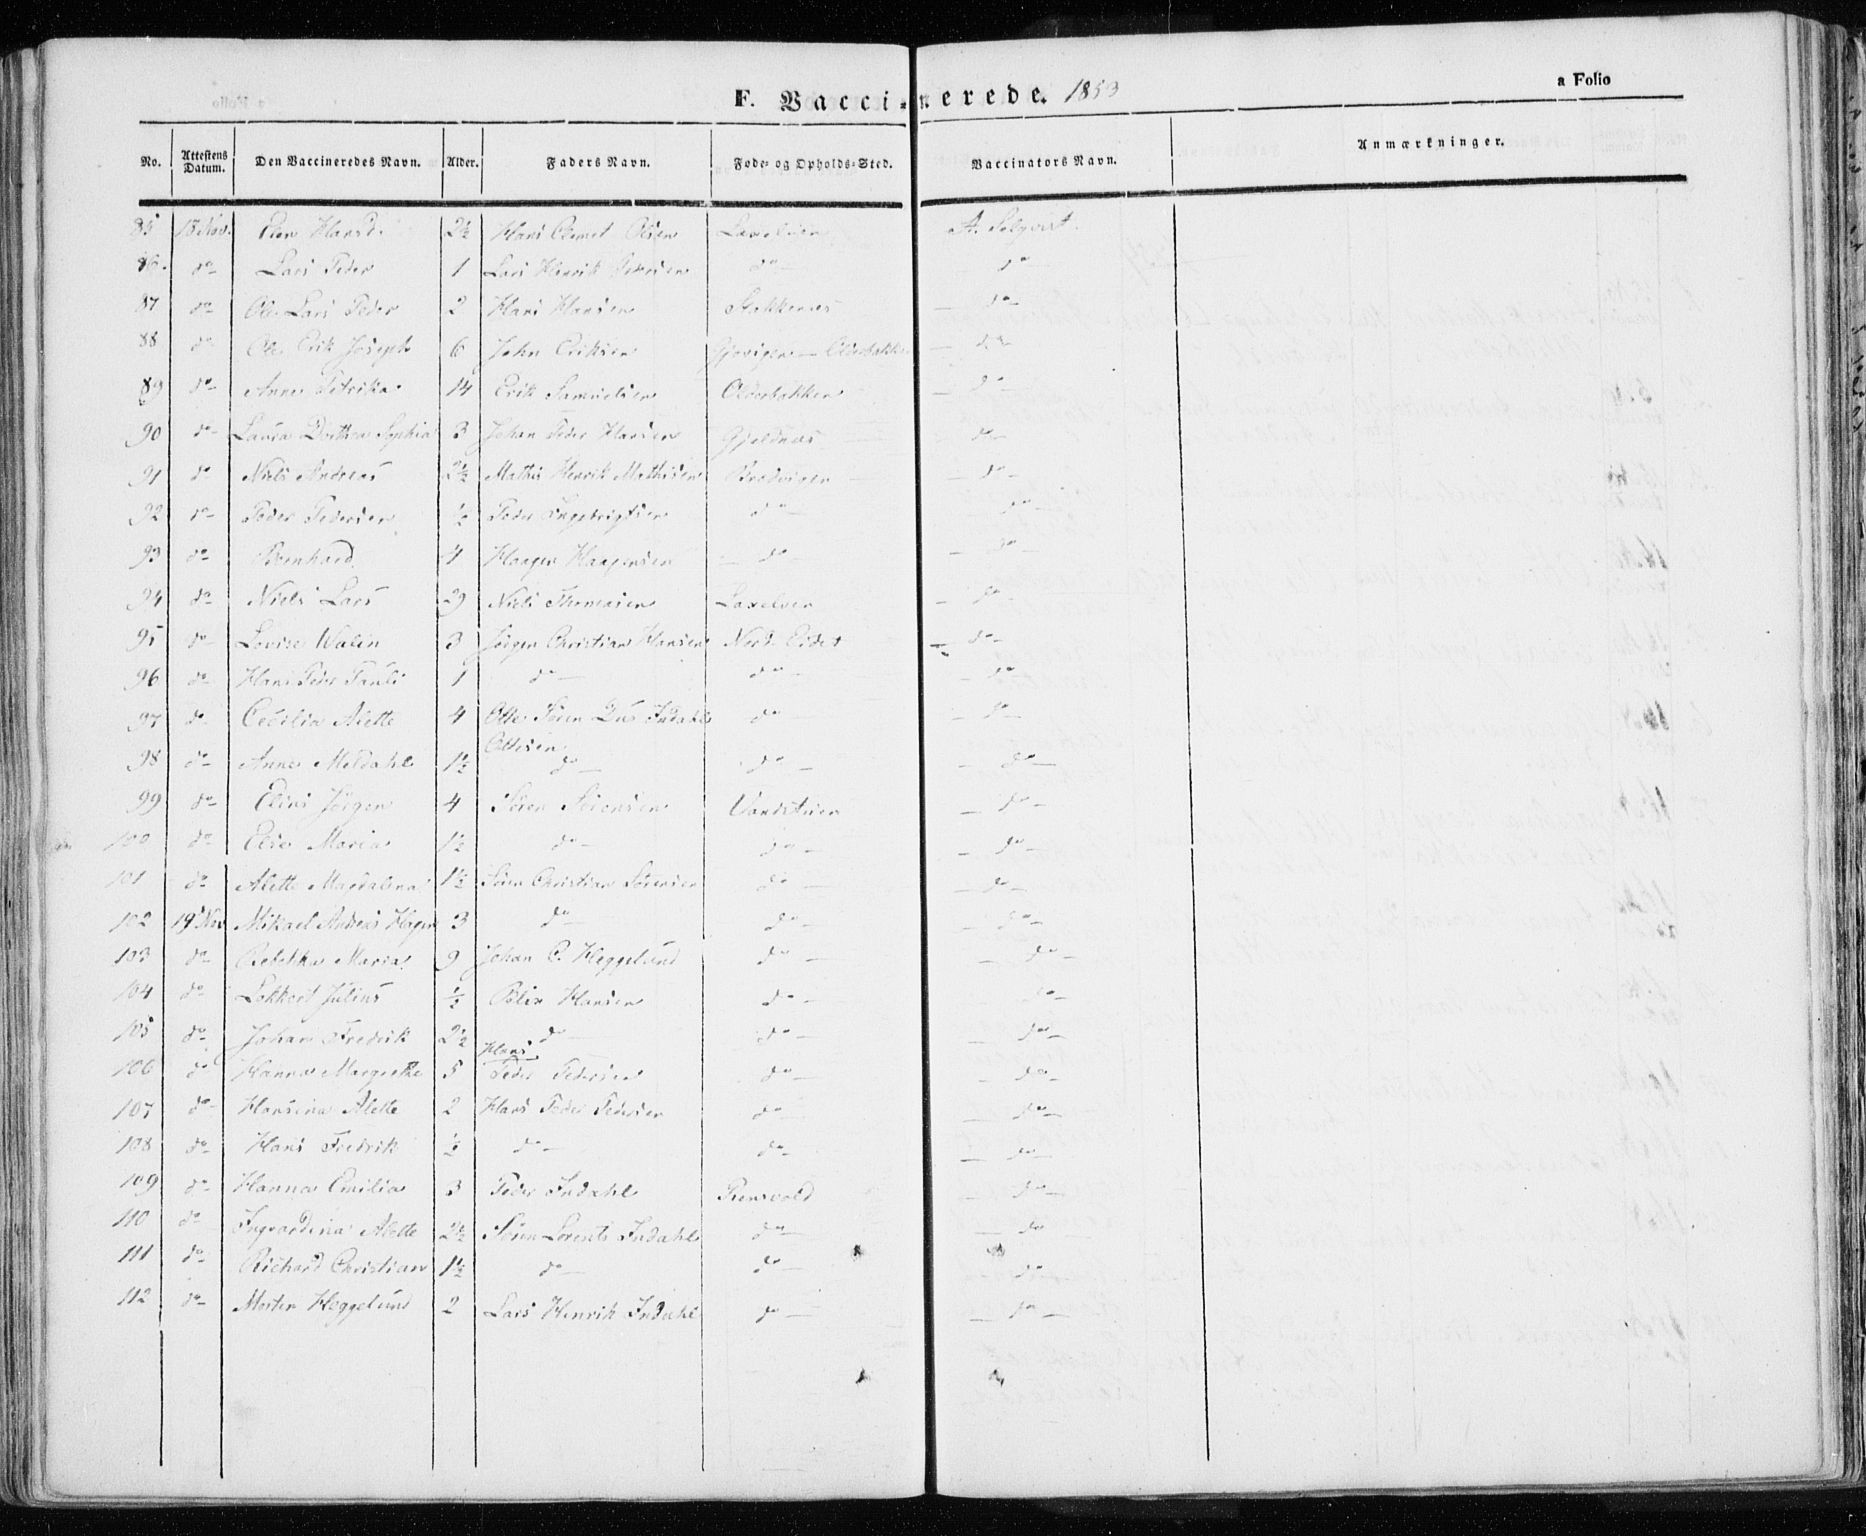 F. Vaccinerede. 1853
a Folio
No. Attestens Datum. Den Vaccineredes Navn. Alder. Faders Navn. Føde- og Opholds-Sted. Vaccinators Navn. Anmærkninger.
85 18 Nov. Hansd. 2½ Hans Clemet Olsen Laxelven A.
86. do Lars Peder 1 Lars Henrik Pedersen do do
87 do Ole Lars Peder 2 Hans Hansen Stokkenes do
88 do Ole Erik Joseph 6 John Eriksen Gjøvigen - Olderbakken do
89 do Anne Petrika 14 Erik Samuelsen Olderbakken do
90 do Laura Dorthea Sophia 3 Johan Peder Hansen Gjeldnes do
91 do Niels Andreas 2½ Mathis Henrik Mathisen Bredvigen do
92 do Peder Pedersen ½ Peder Ingebrigtsen do do
93 do Bernhard 4 Haagen Haagensen do do
94 do Niels Lars 29 Niels Thomasen Laxelven do
95 do Lovise Walin 3 Jørgen Christian Hansen Nord Eidet do
96 do Hans Peder Pauli 1 do do do
97 do Cecilia Alette 4 Otte Søren Dus Indahl do do
Ottesen
98 do Anne Meldahl 1½ do do do
99 do Elias Jørgen 4 Søren Sørensen Vandstuen do
100 do Else Maria 1½ do do do
101 do Alette Magdalena 1½ Søren Christian Sørensen do do
102 19 Nov Mikael Andreas Hagen 3 do do do
103 do Rebekka Maria 9 Johan C. Heggelund do do
104 do Lokkert Julius ½ Blix Hansen do do
105 do Johan Fredrik 2½ do do do
Hans
106 do Hanna Margrethe 5 Peder Pedersen do do
107 do Hansina Alette 2 Hans Peder Pedersen do do
108 do Hans Fredrik ½ do do do
109 do Hanna Emilia 3 Peder Indahl Rensvold do
110 do Ingvardina Alette 2½ Søren Lorents Indahl do do
111 do Richard Christian 1½ do do do
112 do Morten Heggelund 2 Lars Henrik Indahl do do